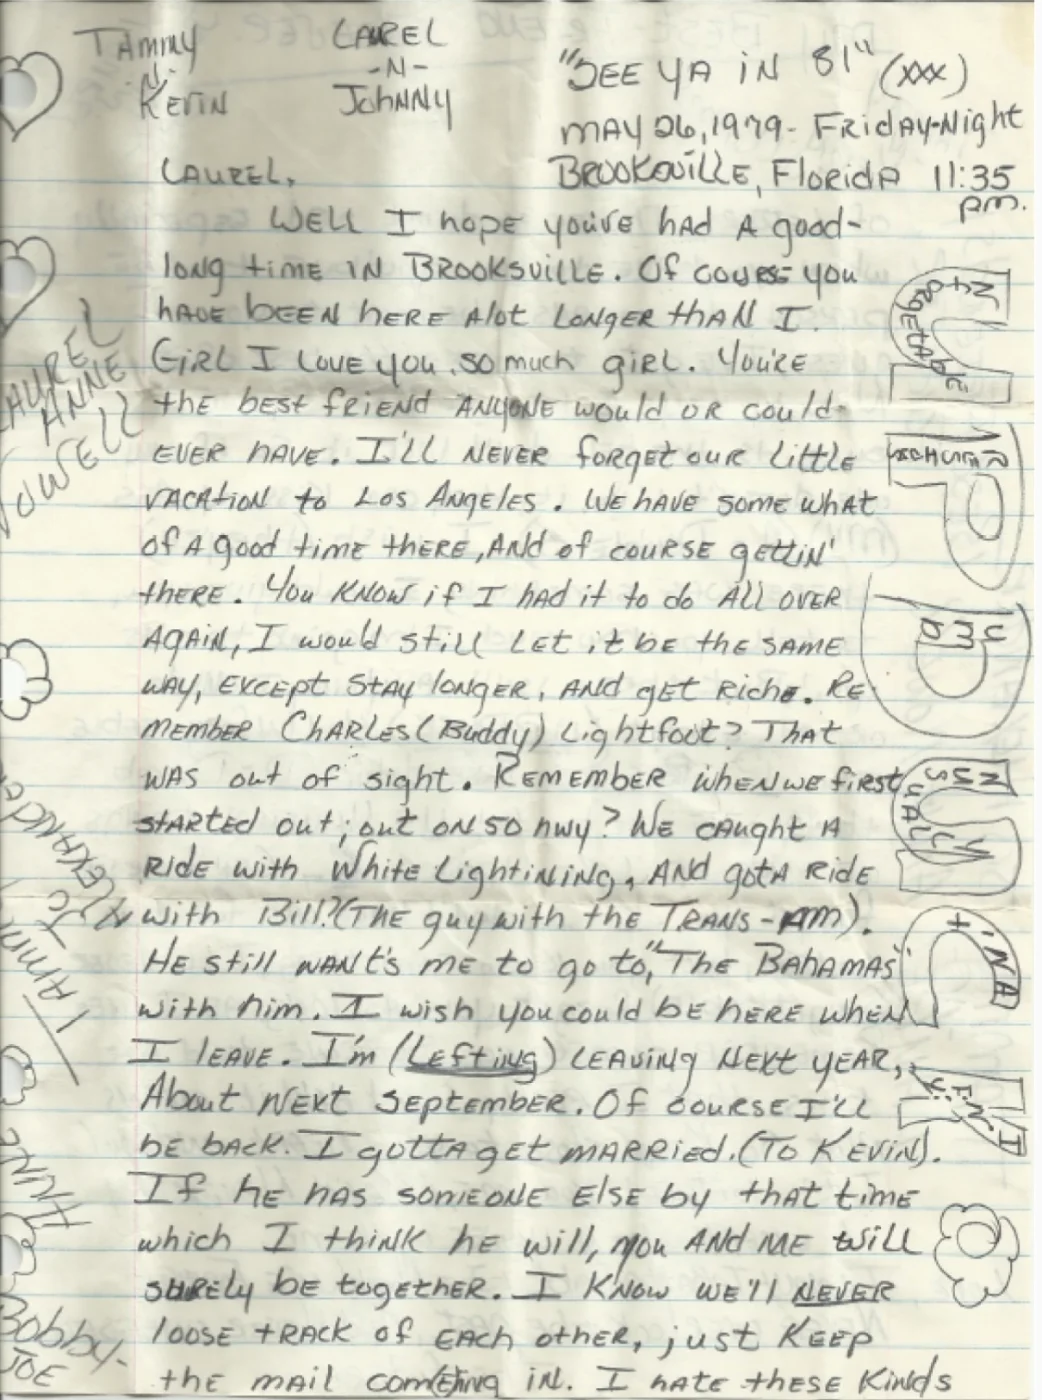 Tammy
-N-
Kevin
Laurel
-N-
Johnny
"See ya in 81" (xxx)
May 26, 1979 - Friday-Night
Brooksville, Florida 11:35
pm.
Laurel,
Well I hope you've had a good-
long time in Brooksville. Of course you
have been here alot longer than I.
Girl I love you so much girl. You're
the best friend anyone would or could-
ever have. I'll never forget our little
vacation to Los Angeles. We have some what
of a good time there, and of course gettin'
there. You know if I had it to do all over
again, I would still let it be the same
way, except stay longer, and get rich. Re-
member Charles (Buddy) Lightfoot? That
was out of sight. Remember when we first
started out; out on 50 hwy? We caught a
ride with White Lightining, and got a ride
with Bill? (The guy with the Trans-Am).
He still want's me to go to, "The Bahamas
with him. I wish you could be here when
I leave. I'm (Lefting) leaving next year,
About next September. Of course I'll
be back. I gotta get married. (To Kevin).
If he has someone else by that time
which I think he will, you and me will
surely be together. I know we'll never
loose track of each other, just keep
the mail coming in. I hate these kinds
Laurel
Anne
Vowell
Tammy
Anne
Bobby-
Joe
Unforgetable
P
Dumb
Unusually